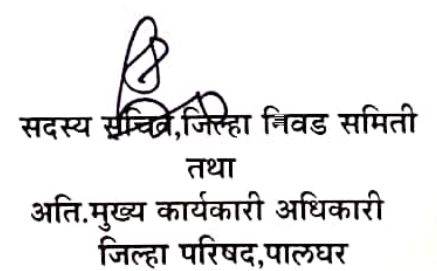 सदस्य सचिव,जिल्हा निवड समिती
तथा
अति.मुख्य कार्यकारी अधिकारी
जिल्हा परिषद,पालघर